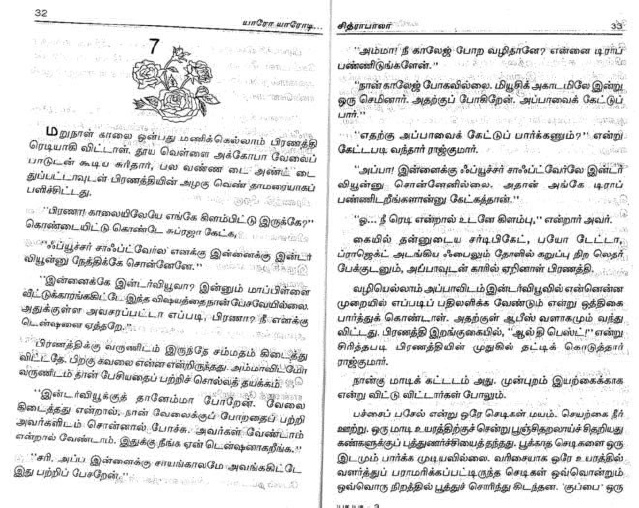 32
யாரோ யாரோடி...
7
மறுநாள் காலை ஒன்பது மணிக்கெல்லாம் பிரணத்தி
ரெடியாகி விட்டாள். தூய வெள்ளை அக்கோபா வேலைப்
பாடுடன் கூடிய சுரிதார், பல வண்ண டை அண்ட் டை
துப்பட்டாவுடன் பிரணத்தியின் அழகு வெண் தாமரையாகப்
பளிச்சிட்டது.
"பிரணா! காலையிலேயே எங்கே கிளம்பிட்டு இருக்கே?"
கொண்டையிட்டு கொண்டே சுப்ரஜா கேட்க,
"ஃப்யூச்சர் சாஃப்ட்வேர்ல எனக்கு இன்னைக்கு இன்டர்
வியூன்னு நேத்திக்கே சொன்னேனே."
"இன்னைக்கே இன்டர்வியூவா? இன்னும் மாப்பிள்ளை
வீட்டுக்காரங்ககிட்டே இந்த விஷயத்தை நான் பேசவேயில்லை.
அதுக்குள்ள அவசரப்பட்டா எப்படி, பிரணா? நீ எனக்கு
டென்ஷனை ஏத்தறே."
பிரணத்திக்கு வருணிடம் இருந்தே சம்மதம் கிடைத்து
விட்டதே. பிறகு கவலை என்ன என்றிருந்தது. அம்மாவிடமோ
வருணிடம் தான் பேசியதைப் பற்றிச் சொல்லத் தயக்கம்.
"இன்டர்வியூக்குத் தானேம்மா போறேன். வேலை
கிடைத்தது என்றால், நான் வேலைக்குப் போறதைப் பற்றி
அவர்களிடம் சொன்னால் போச்சு. அவர்கள் வேண்டாம்
என்றால் வேண்டாம். இதுக்கு நீங்க ஏன் டென்ஷனாகறீங்க."
"சரி, அப்ப இன்னைக்கு சாயங்காலமே அவங்ககிட்டே
இது பற்றிப் பேசறேன்."
சித்ராபாலா
33
"அம்மா! நீ காலேஜ் போற வழிதானே? என்னை டிராப்
பண்ணிடுங்களேன்."
"நான் காலேஜ் போகவில்லை. மியூசிக் அகாடமிலே இன்று
ஒரு செமினார். அதற்குப் போகிறேன். அப்பாவைக் கேட்டுப்
பார்."
"எதற்கு அப்பாவைக் கேட்டுப் பார்க்கணும்?" என்று
கேட்டபடி வந்தார் ராஜ்குமார்.
"அப்பா! இன்னைக்கு ஃப்யூச்சர் சாஃப்ட்வேர்லே இன்டர்
வியூன்னு சொன்னேனில்லை. அதான் அங்கே டிராப்
பண்ணிடறீங்களான்னு கேட்கத்தான்."
"ஓ... நீ ரெடி என்றால் உடனே கிளம்பு," என்றார் அவர்.
கையில் தன்னுடைய சர்டிபிகேட், பயோ டேட்டா,
ப்ராஜெக்ட் அடங்கிய ஃபைலும் தோளில் கறுப்பு நிற லெதர்
பேக்குடனும், அப்பாவுடன் காரில் ஏறினாள் பிரணத்தி.
வழியெல்லாம் அப்பாவிடம் இன்டர்வியூவில் என்னென்ன
முறையில் எப்படிப் பதிலளிக்க வேண்டும் என்று ஒத்திகை
பார்த்துக் கொண்டாள். அதற்குள் ஆபீஸ் வளாகமும் வந்து
விட்டது. பிரணத்தி இறங்குகையில், "ஆல்தி பெஸ்ட்!" என்று
சிரித்தபடி பிரணத்தியின் முதுகில் தட்டிக் கொடுத்தார்
ராஜ்குமார்.
நான்கு மாடிக் கட்டடம் அது. முன்புறம் இயற்கைக்காக
என்று விட்டு விட்டார்கள் போலும்.
பச்சைப் பசேல் என்று ஒரே செடிகள் மயம். செயற்கை நீர்
ஊற்று. ஒரு மாடி உயரத்திற்குச் சென்று பூஞ்சிதறலாய்ச் சிதறியது
கண்களுக்குப் புத்துணர்ச்சியைத் தந்தது. பூக்காத செடிகளை ஒரு
இடமும் பார்க்க முடியவில்லை. வரிசையாக ஒரே உயரத்தில்
வளர்த்துப் பராமரிக்கப்பட்டிருந்த செடிகள் ஒவ்வொன்றும்
ஒவ்வொரு நிறத்தில் பூத்துச் சொரிந்து கிடந்தன. 'குப்பை' ஒரு